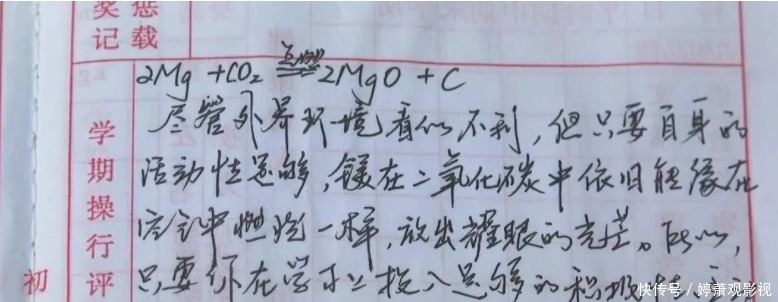 奖惩
记载
点燃
2Mg + CO₂ ═ 2MgO + C
尽管外界环境看似不利，但只要自身的
活动性足够，镁在二氧化碳中依旧能像在
空气中燃烧一样，放出耀眼的光芒。所以，
只要你在学习上投入足够的积极
学期操行评
初
快传号 / 婷萧观影视